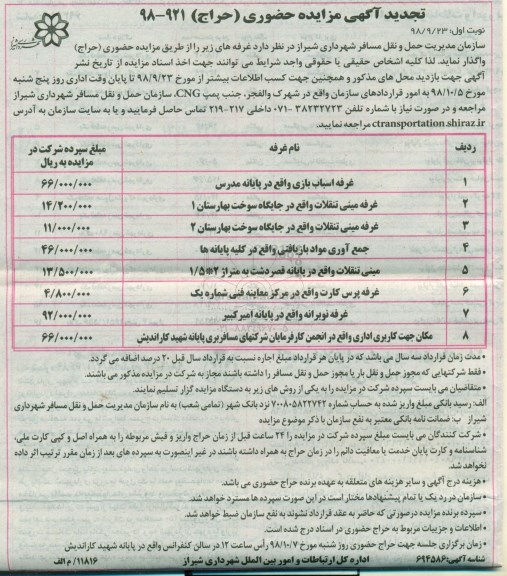 تجدید آگهی مزایده حضوری (حراج) ۹۲۱-۹۸
نوبت اول: ۹۸/۹/۲۳
سازمان مدیریت حمل و نقل مسافر شهرداری شیراز در نظر دارد غرفه های زیر را از طریق مزایده حضوری (حراج)
واگذار نماید. لذا کلیه اشخاص حقیقی یا حقوقی واجد شرایط می توانند جهت اخذ اسناد مزایده از تاریخ نشر
آگهی جهت بازدید محل های مذکور و همچنین جهت کسب اطلاعات بیشتر از مورخ ۹۸/۹/۲۳ تا پایان وقت اداری روز پنج شنبه
مورخ ۹۸/۱۰/۵ به امور قراردادهای سازمان واقع در شهرک والفجر، جنب پمپ CNG، سازمان حمل و نقل مسافر شهرداری شیراز
مراجعه و در صورت نیاز با شماره تلفن ۳۸۲۳۲۷۲۳-۰۷۱ داخلی ۲۱۷-۲۱۹ تماس حاصل فرمایید و یا به سایت سازمان به آدرس
ctransportation.shiraz.ir مراجعه نمایید.
ردیف نام غرفه مبلغ سپرده شرکت در مزایده به ریال
۱ غرفه اسباب بازی واقع در پایانه مدرس ۶۶/۰۰۰/۰۰۰
۲ غرفه مینی تنقلات واقع در جایگاه سوخت بهارستان ۱ ۱۴/۲۰۰/۰۰۰
۳ غرفه مینی تنقلات واقع در جایگاه سوخت بهارستان ۲ ۱۱/۰۰۰/۰۰۰
۴ جمع آوری مواد بازیافتی واقع در کلیه پایانه ها ۴۶/۰۰۰/۰۰۰
۵ مینی تنقلات واقع در پایانه قصردشت به متراژ ۲@۱/۵ ۱۳/۵۰۰/۰۰۰
۶ غرفه پرس کارت واقع در مرکز معاینه فنی شماره یک ۴/۸۰۰/۰۰۰
۷ غرفه نوبرانه واقع در پایانه امیرکبیر ۹۲/۰۰۰/۰۰۰
۸ مکان جهت کاربری اداری واقع در انجمن کارفرمایان شرکتهای مسافربری پایانه شهید کاراندیش ۶۶/۰۰۰/۰۰۰
• مدت زمان قرارداد سه سال می باشد که در پایان هر قرارداد مبلغ اجاره نسبت به قرارداد سال قبل ۲۰ درصد اضافه می گردد.
• فقط شرکتهایی که مجوز حمل و نقل بار یا مجوز حمل و نقل مسافر را داشته باشند مجاز به شرکت در مزایده مذکور می باشند.
• متقاضیان می بایست سپرده شرکت در مزایده را به یکی از روش های زیر به دستگاه مزایده گزار تسلیم نمایند.
الف: رسید بانکی مبلغ واریز شده به حساب شماره ۷۰۰۸۰۵۸۲۲۷۴۲ نزد بانک شهر (تمامی شعب) به نام سازمان مدیریت حمل و نقل مسافر شهرداری
شیراز ب: ضمانت نامه بانکی معتبر به نفع سازمان با ذکر موضوع مزایده
• شرکت کنندگان می بایست مبلغ سپرده شرکت در مزایده را ۲۴ ساعت قبل از زمان حراج واریز و فیش مربوطه را به همراه اصل و کپی کارت ملی،
شناسنامه و کارت پایان خدمت یا معافیت دائم را در زمان حراج به همراه داشته باشند در غیر اینصورت به سپرده های بعد از زمان مقرر ترتیب اثر داده
نخواهد شد.
• هزینه درج آگهی و سایر هزینه های متعلقه به عهده برنده حراج حضوری می باشد.
• سازمان در رد یک یا تمام پیشنهادها مختار است در این صورت سپرده ها مسترد خواهد شد.
• سپرده برنده مزایده درصورتی که حاضر به عقد قرارداد نشوند به نفع سازمان ضبط خواهد شد.
• اطلاعات و جزییات مربوط به حراج حضوری در اسناد درج شده است.
• زمان برگزاری جلسه جهت حراج حضوری روز شنبه مورخ ۹۸/۱۰/۷ رأس ساعت ۱۲ در سالن کنفرانس واقع در پایانه شهید کاراندیش
شناسه آگهی: ۶۹۴۵۸۶ اداره کل ارتباطات و امور بین الملل شهرداری شیراز ۱۱۸۱۶/ م الف